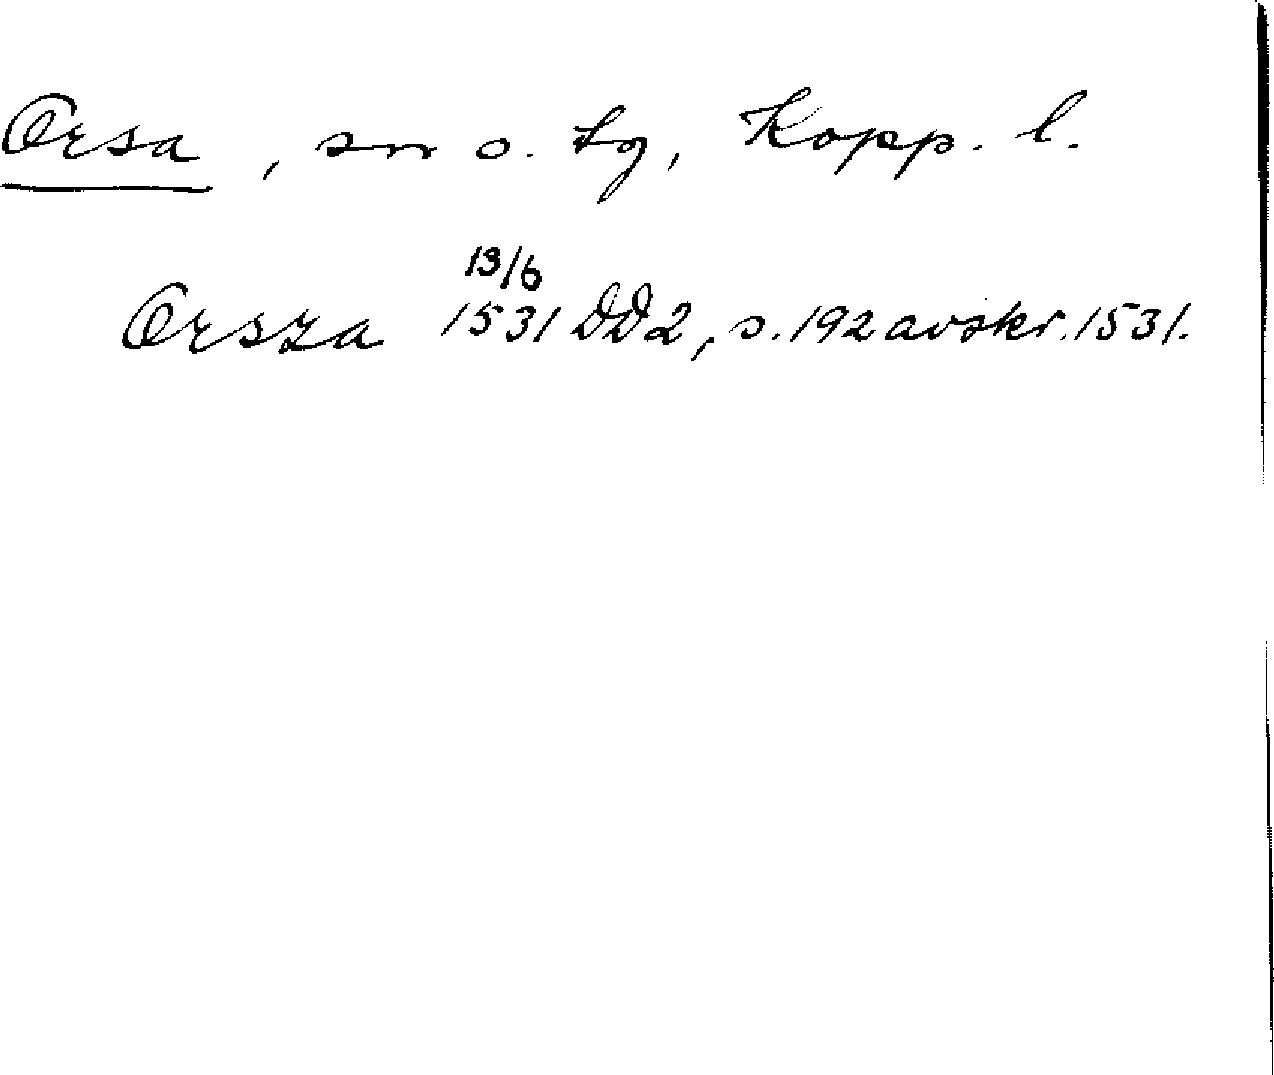 Orsa, sn o. tg, Kopp. l.
13/6
Orsza 1531 DD2, s. 192 avskr. 1531.